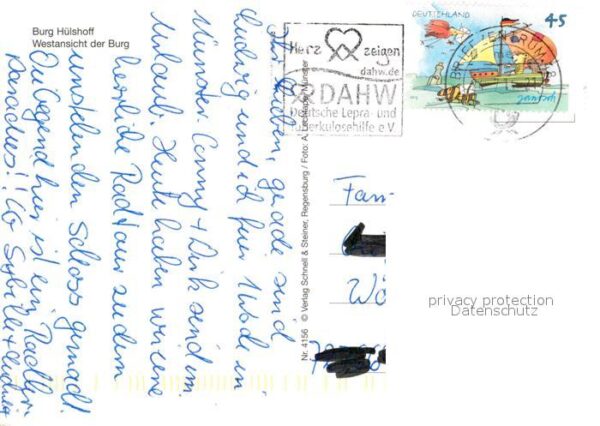 Burg Hülshoff
Westansicht der Burg
Ihr Lieben, gerade sind
Ludwig und ich für 1 Woche in
Münster. Conny + Dirk sind im
Urlaub. Heute haben wir eine
herrliche Radtour zu dem
Schloss gemacht!
Die Gegend hier ist ein Radler-
paradies!! LG Sybille + Ludwig
Nr. 4156 © Verlag Schnell & Steiner, Regensburg / Foto: Münster
Herz zeigen
dahw.de
DAHW
Deutsche Lepra- und
Tuberkulosehilfe e.V.
DEUTSCHLAND
45
BRIEFZENTRUM
Janosch
Fam
Wö
privacy protection
Datenschutz